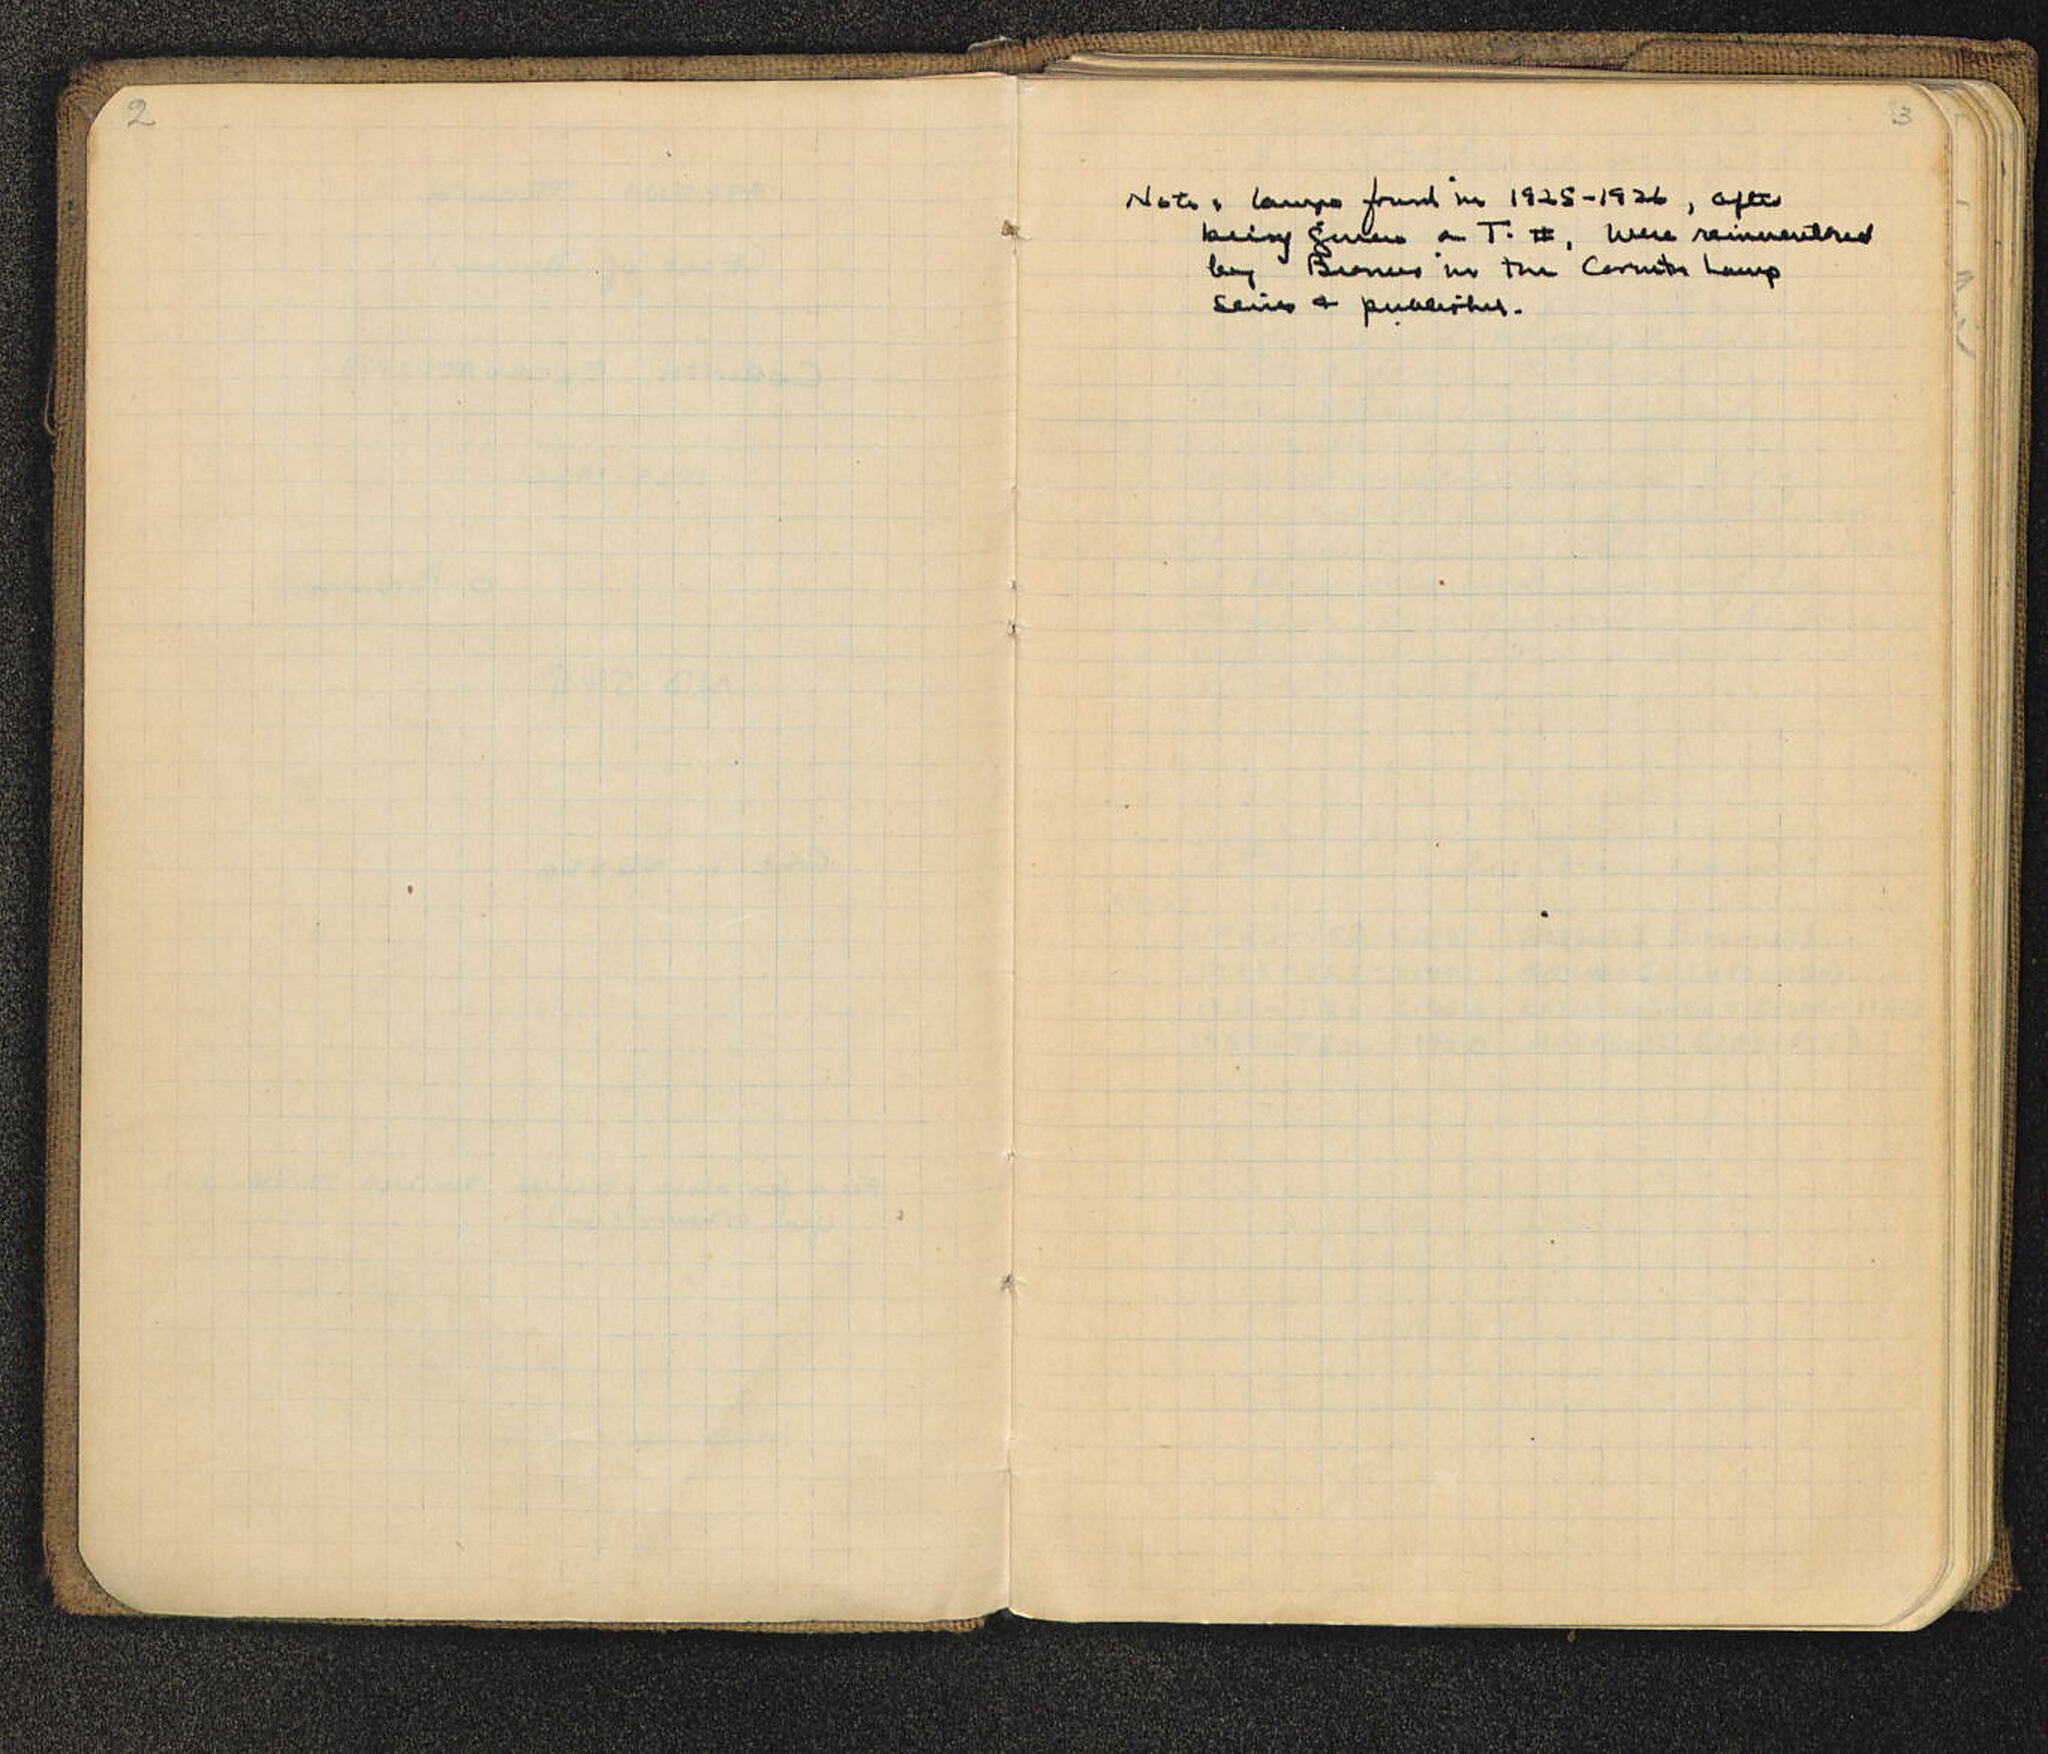 2
3
Note: Lamps found in 1925-1926, after
being given a T. #, were reinventoried
by Broneer in the Corinth Lamp
series & published.